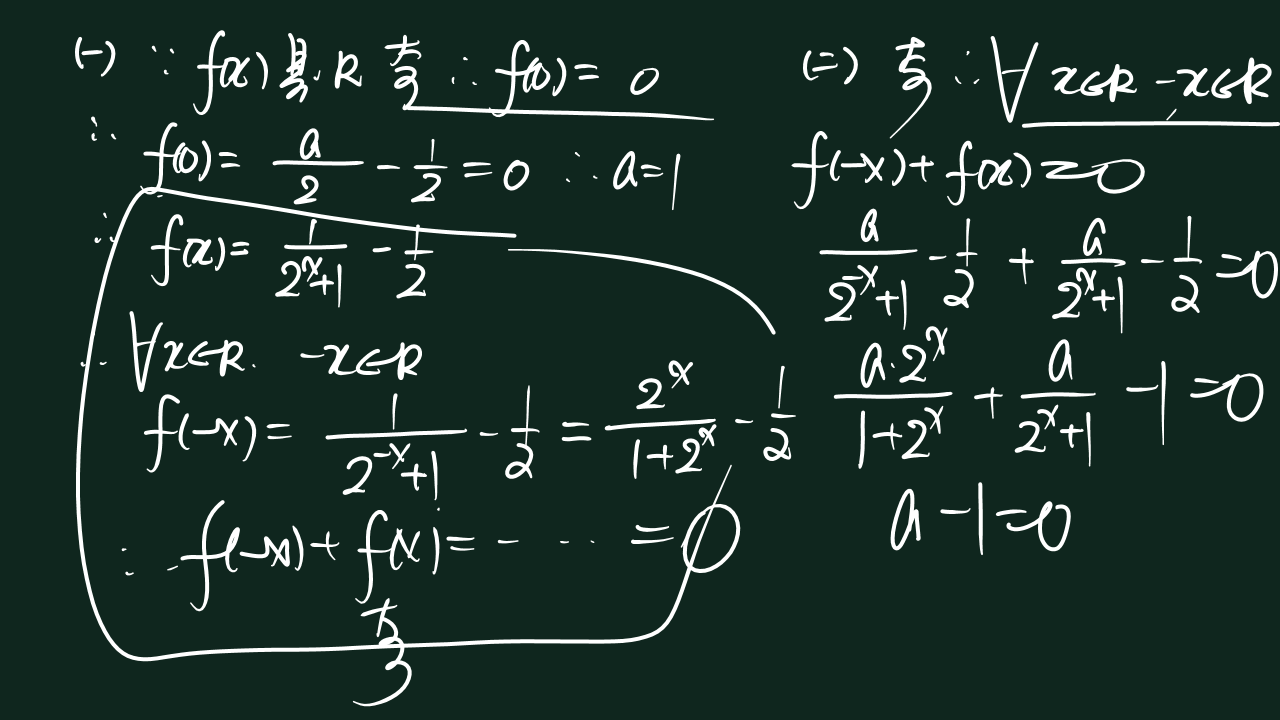 (一) ∵ f(x)是R奇 ∴ f(0) = 0
∴ f(0) = a/2 - 1/2 = 0 ∴ a = 1
∴ f(x) = 1/(2^x+1) - 1/2
∵ ∀x∈R. -x∈R
f(-x) = 1/(2^-x+1) - 1/2 = 2^x/(1+2^x) - 1/2
∴ f(-x) + f(x) = - ... = 0
奇
(二) 奇 ∴ ∀ x∈R -x∈R
f(-x) + f(x) = 0
a/(2^-x+1) - 1/2 + a/(2^x+1) - 1/2 = 0
a·2^x/(1+2^x) + a/(2^x+1) - 1 = 0
a - 1 = 0